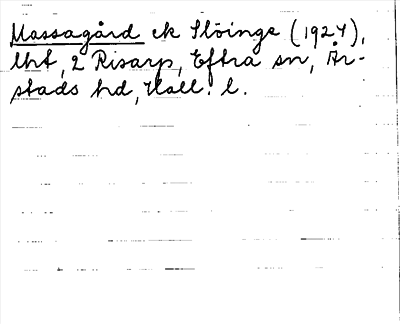 Massagård ek Slöinge (1924),
lht, 2 Risarp, Eftra sn, År-
stads hd, Hall. l.